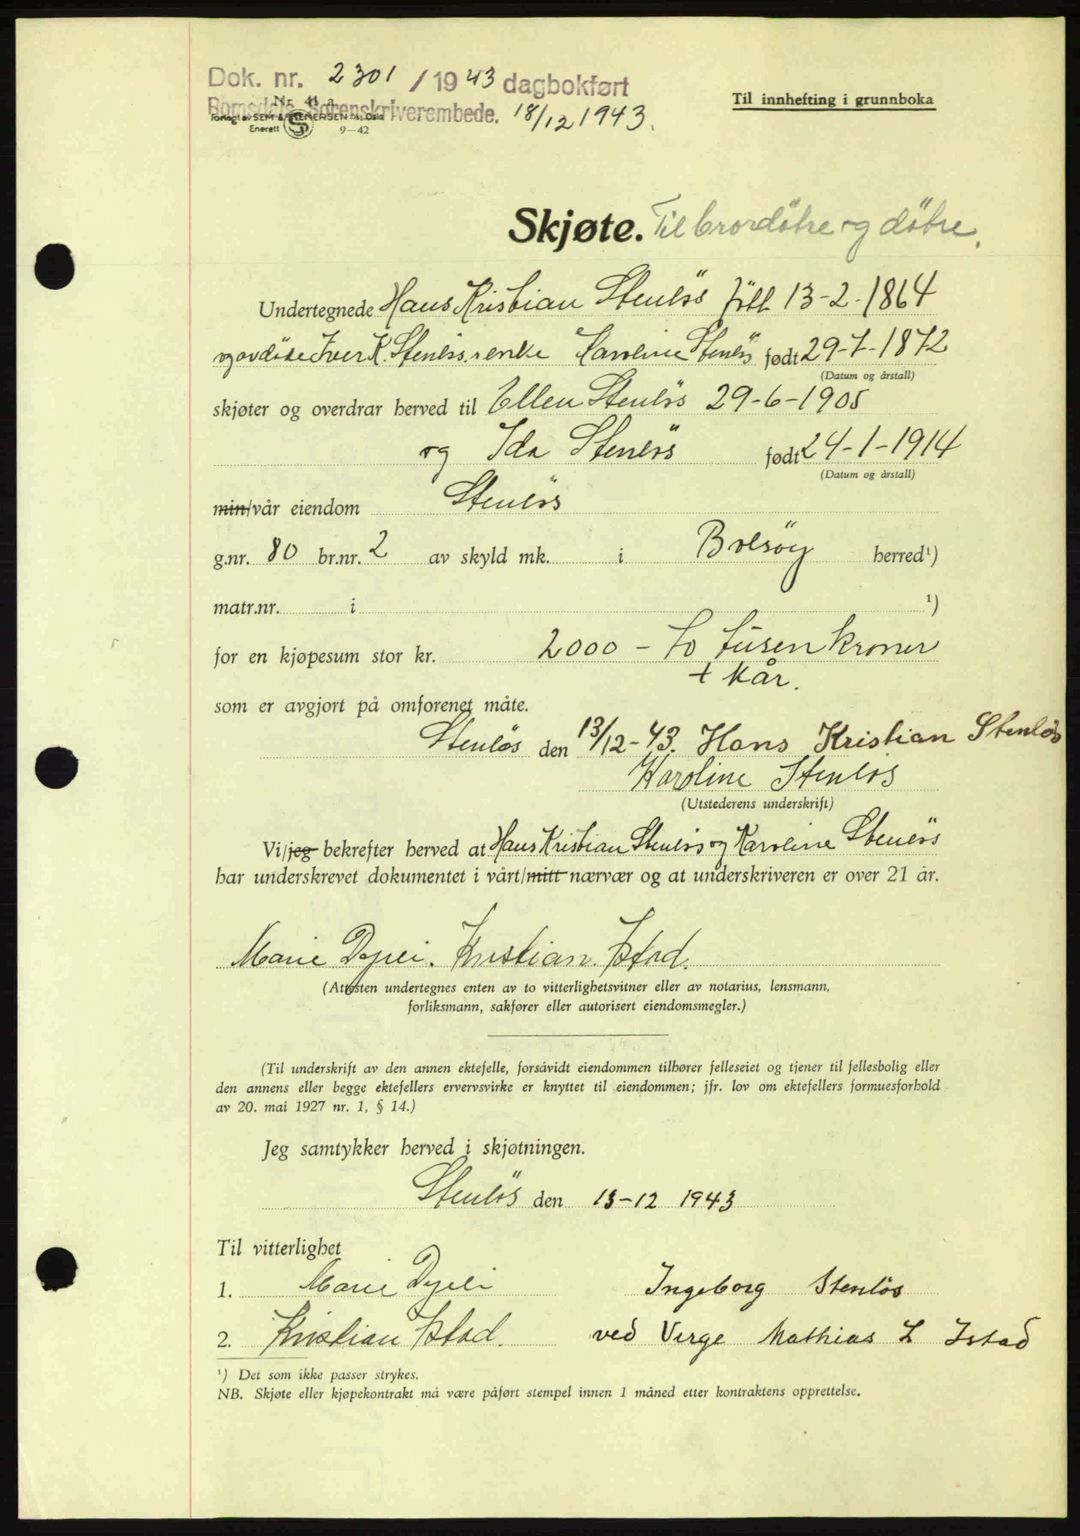 Dok. nr. 2301 / 1943 dagbokført
Nr. 41 a
Romsdals Sorenskriverembede. 18/12 1943.
Forlagt av SEM & STENERSEN A/S, Oslo
Enerett 9-42
Til innhefting i grunnboka
Skjøte. Til brordötre og dötre.
Undertegnede Hans Kristian Stenlös född 13-2-1864
og avdöde Iver K. Stenlös, enke Karoline Stenlös født 29-7-1872
(Datum og årstall)
skjøter og overdrar herved til Ellen Stenlös 29-6-1905
og Ida Stenlös født 24-1-1914
(Datum og årstall)
min/vår eiendom Stenlös
g.nr. 80 br.nr. 2 av skyld mk. i Bolsöy herred¹)
matr.nr. i ¹)
for en kjøpesum stor kr. 2000 - to tusen kroner
+ kår.
som er avgjort på omforenet måte.
Stenlös den 13/12-43. Hans Kristian Stenlös
Karoline Stenlös
(Utstederens underskrift)
Vi/jeg bekrefter herved at Hans Kristian Stenlös og Karoline Stenlös
har underskrevet dokumentet i vårt/mitt nærvær og at underskriveren er over 21 år.
Marie Dyrli. Kristian Istad.
(Attesten undertegnes enten av to vitterlighetsvitner eller av notarius, lensmann,
forliksmann, sakfører eller autorisert eiendomsmegler.)
(Til underskrift av den annen ektefelle, forsåvidt eiendommen tilhører felleseiet og tjener til fellesbolig eller
den annens eller begge ektefellers ervervsvirke er knyttet til eiendommen; jfr. lov om ektefellers formuesforhold
av 20. mai 1927 nr. 1, § 14.)
Jeg samtykker herved i skjøtningen.
Stenlös den 13-12 1943
Til vitterlighet
1. Marie Dyrli Ingeborg Stenløs
2. Kristian Istad. ved Verge Mathias L Istad
¹) Det som ikke passer strykes.
NB. Skjøte eller kjøpekontrakt må være påført stempel innen 1 måned etter kontraktens opprettelse.